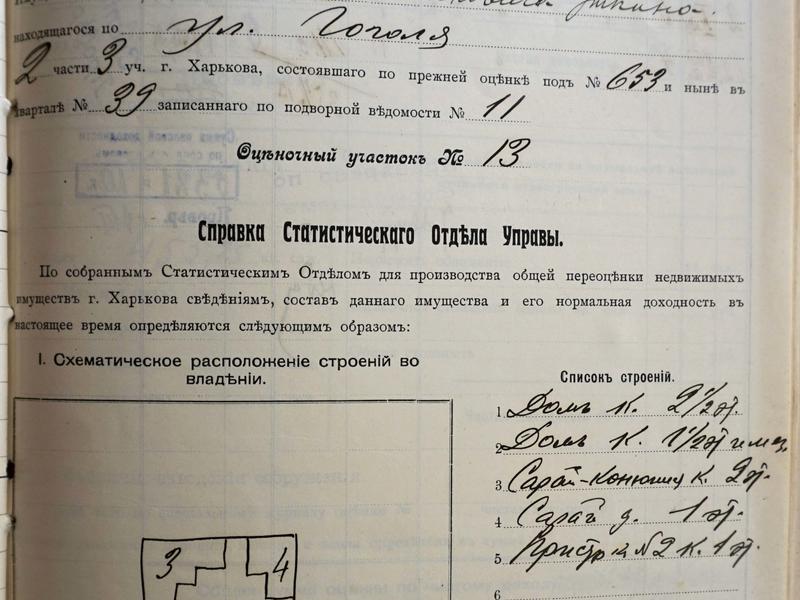 находящагося по ул. Гоголя
2 части 3 уч. г. Харькова, состоявшаго по прежней оцѣнкѣ подъ № 653 и нынѣ въ
кварталѣ № 39 записаннаго по подворной вѣдомости № 11
Оцѣночный участокъ № 13
Справка Статистическаго Отдѣла Управы.
По собраннымъ Статистическимъ Отдѣломъ для производства общей переоцѣнки недвижимыхъ
имуществъ г. Харькова свѣдѣніямъ, составъ даннаго имущества и его нормальная доходность въ
настоящее время опредѣляются слѣдующимъ образомъ:
I. Схематическое расположеніе строеній во
владѣніи.
Списокъ строеній.
1. Домъ к. 2 1/2 эт.
2 Домъ к. 1 1/2 эт и мез.
3 Сарай-конюшня к. 2 эт.
4 Сарай д. 1 эт.
5 Пристр к №2 к. 1 эт.
6
3 4